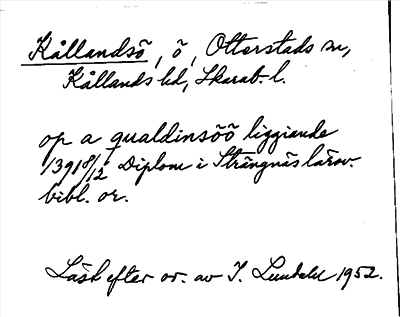 Kållandsö, ö, Otterstads sn,
Kållands hd, Skarab. l.
op a qualdinsöö liggiande
1391 8/12 Diplom i Strängnäs lärov.
bibl. or.
Läst efter or. av I. Lundahl 1952.